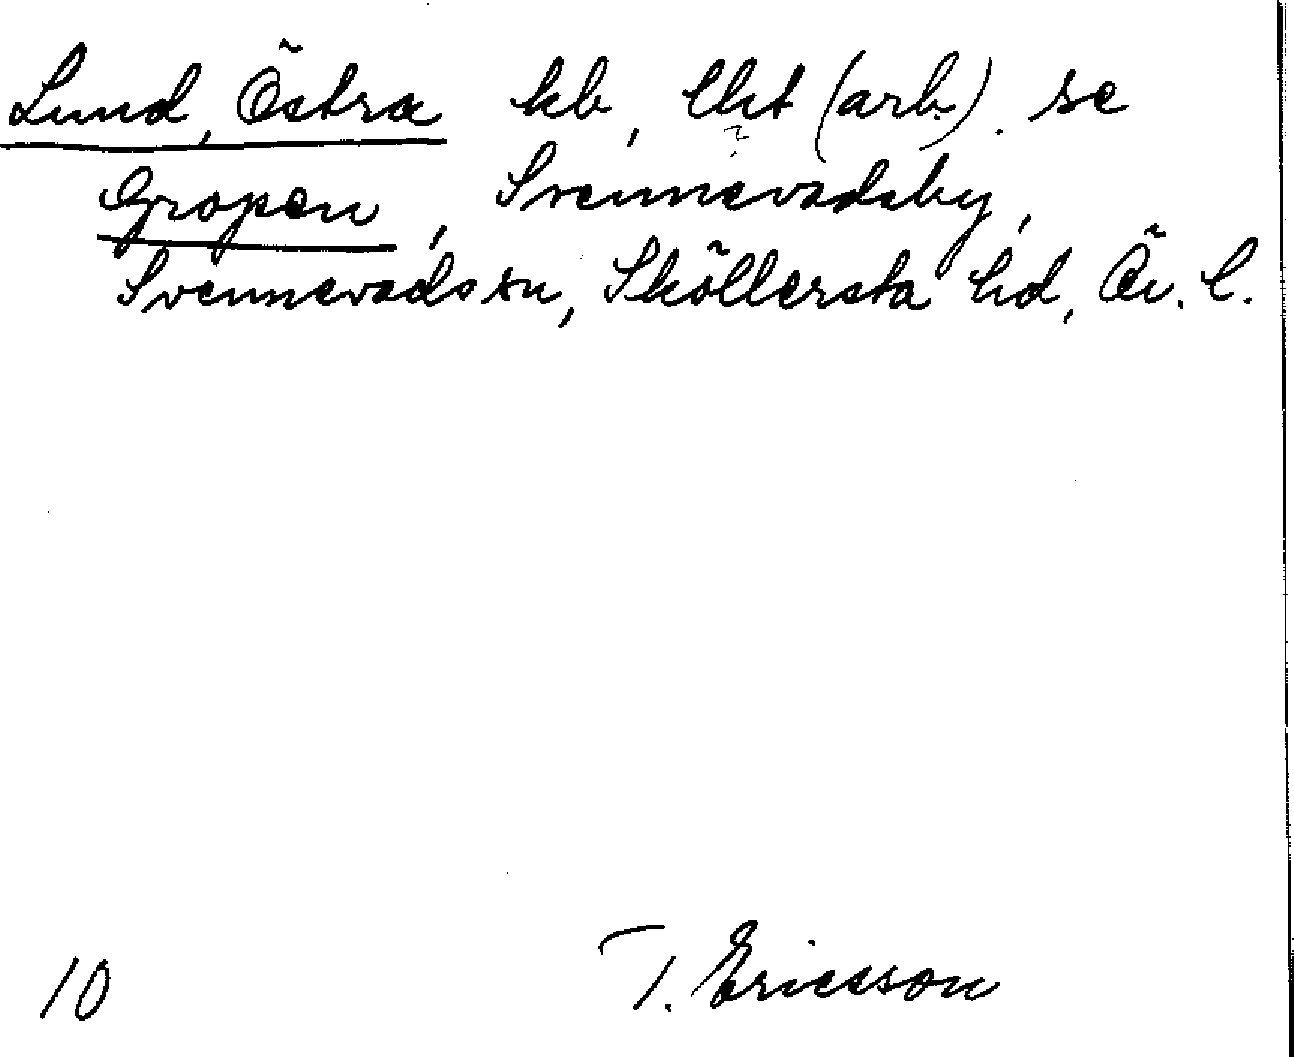 Lund, Östra kb, lht (arb). se
Gropen, Svennevadsby,
Svennevads sn, Sköllersta hd, Ör. l.
10 T. Ericsson